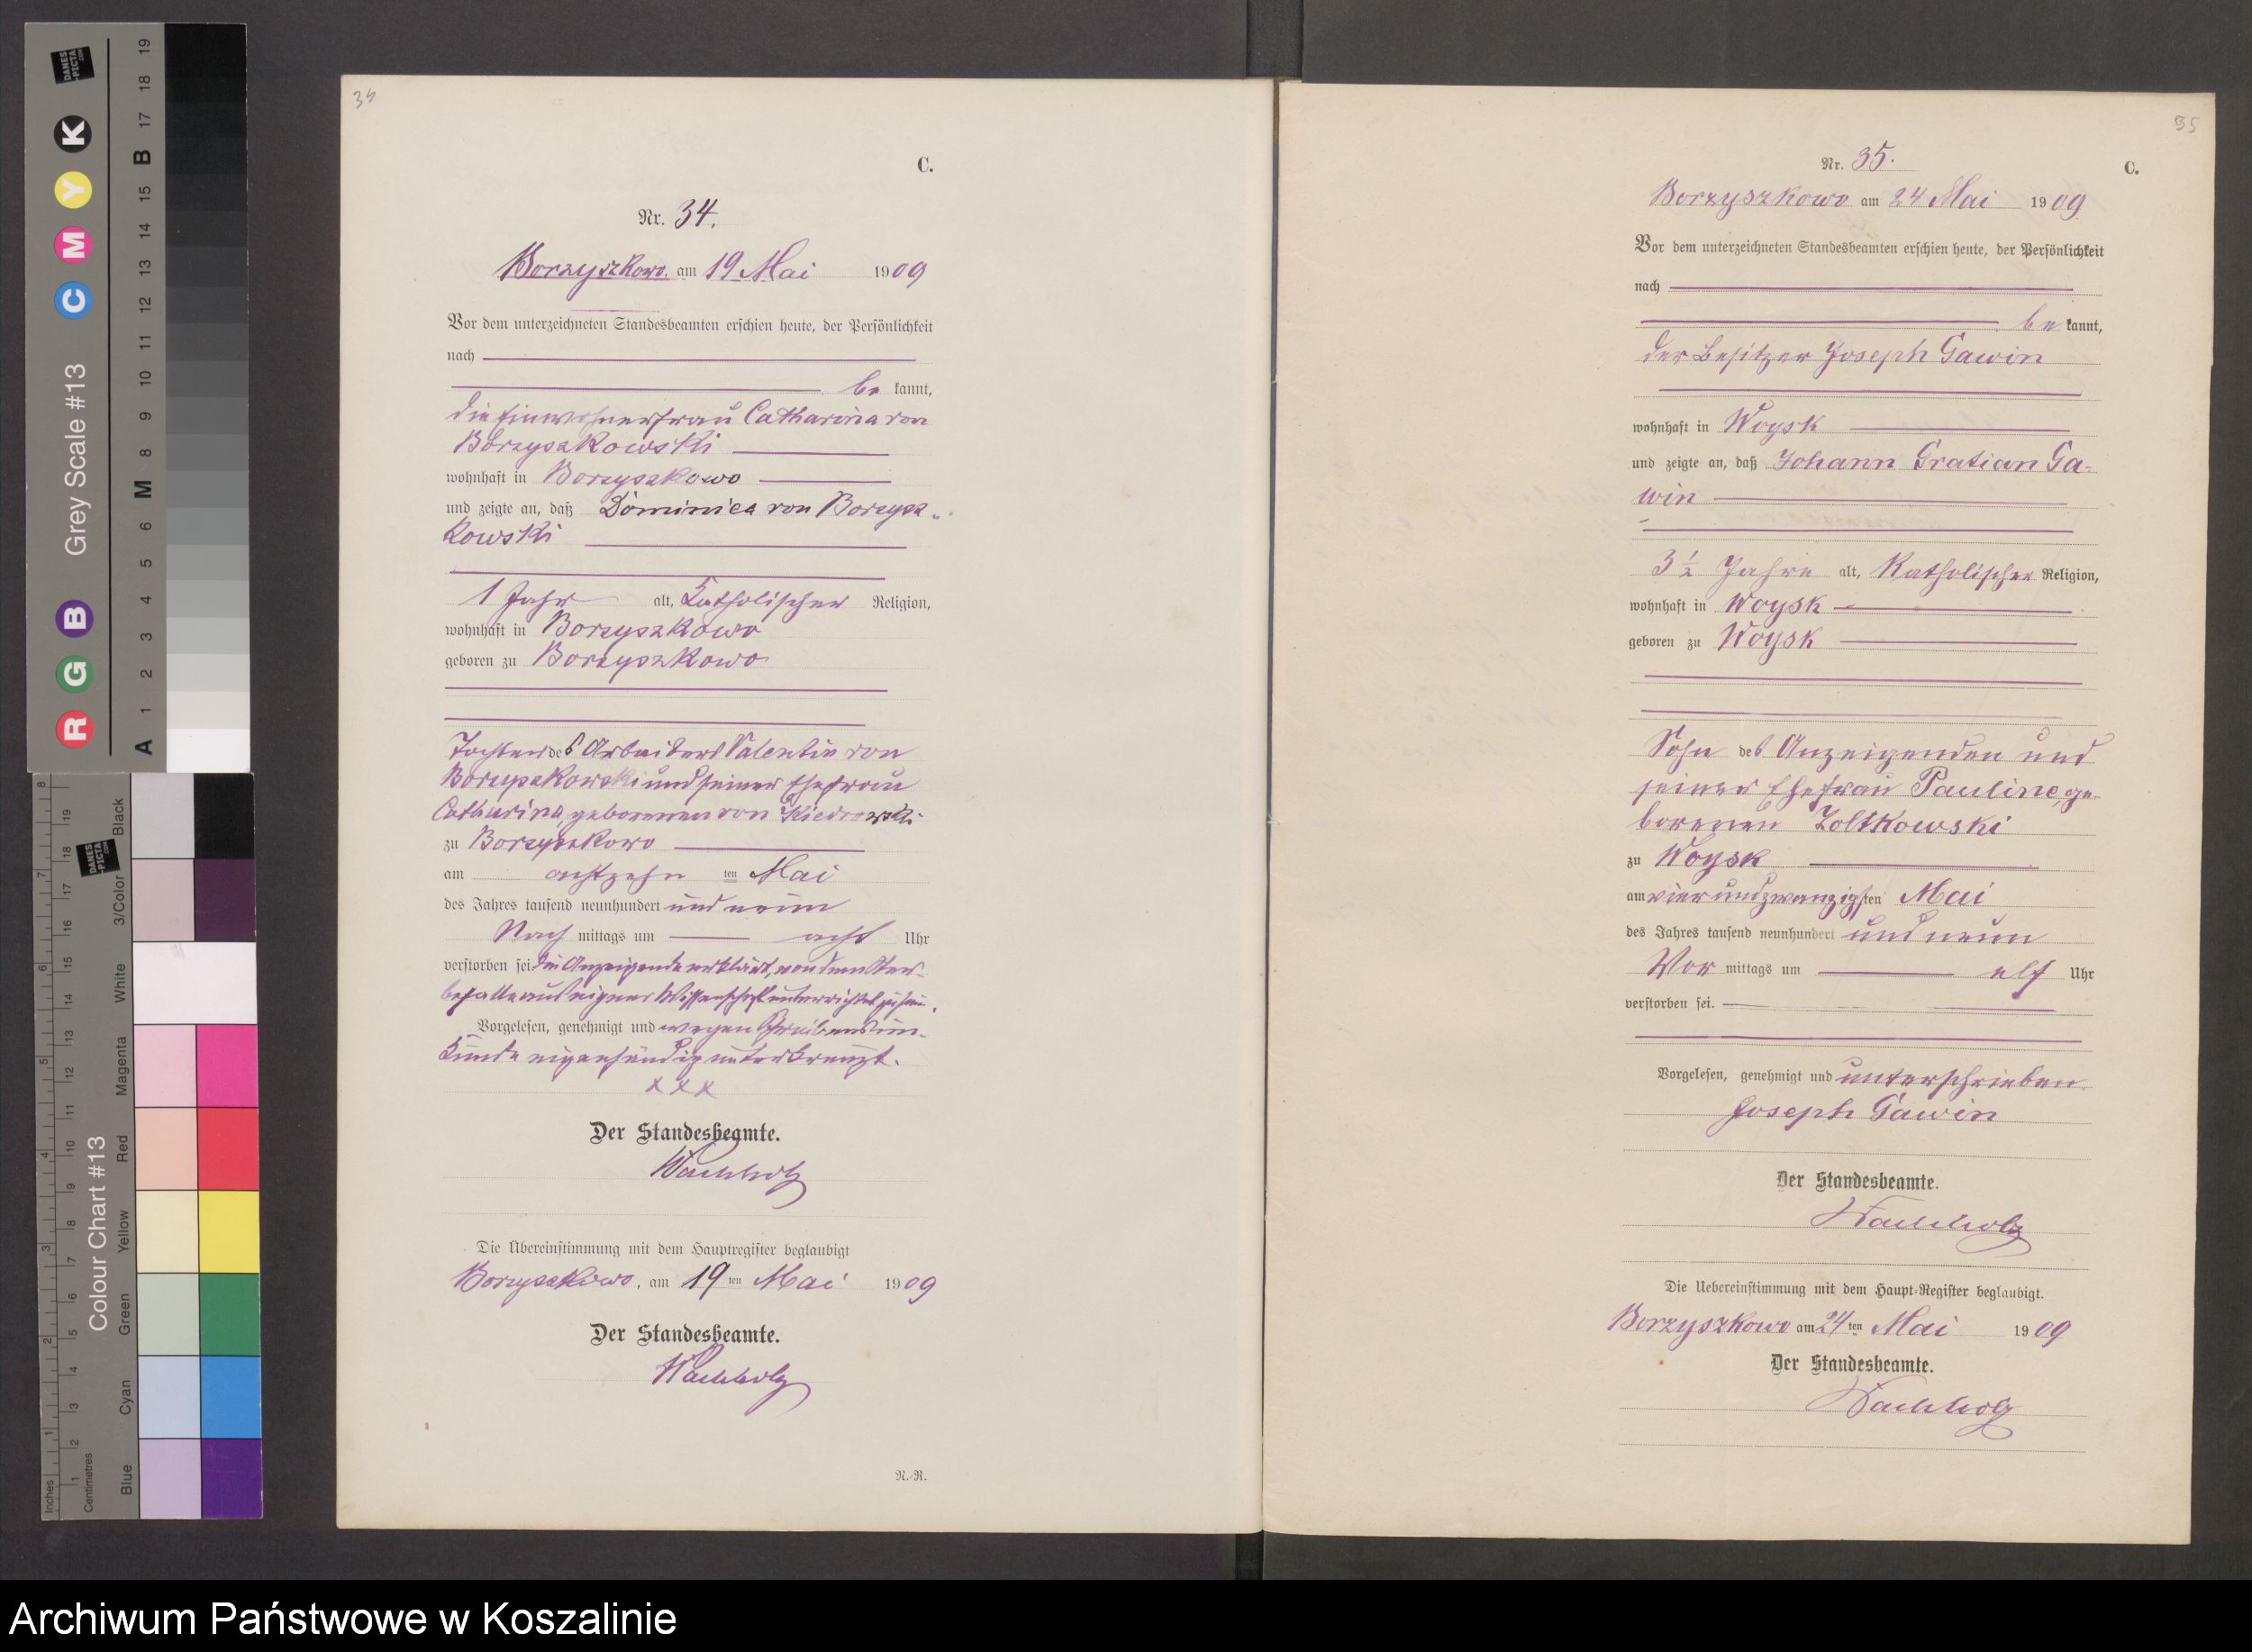 34
C.
Nr. 34.
Borzyszkowo. am 19. Mai 1909
Vor dem unterzeichneten Standesbeamten erschien heute, der Persönlichkeit
nach
be kannt,
die Einwohnerfrau Catharina von
Borzyszkowski
wohnhaft in Borzyszkowo
und zeigte an, daß Dominica von Borzysz-
kowski
1 Jahr alt, katholischer Religion,
wohnhaft in Borzyszkowo
geboren zu Borzyszkowo
Tochter des Arbeiters Valentin von
Borzyszkowski und seiner Ehefrau
Catharina, geborenen von Kiedrowski
zu Borzyszkowo
am achtzehn ten Mai
des Jahres tausend neunhundert und neun
Nach mittags um acht Uhr
verstorben sei die Anzeigende erklärt, von dem Ster-
befalle aus eigner Wissenschaft unterrichtet zu sein.
Vorgelesen, genehmigt und wegen Schreibensun-
kunde eigenhändig unterkreuzt.
x x x
Der Standesbeamte.
Wachholz
Die Übereinstimmung mit dem Hauptregister beglaubigt
Borzyszkowo, am 19 ten Mai 1909
Der Standesbeamte.
Wachholz
N.-R.
35
Nr. 35.
C.
Borzyszkowo am 24 Mai 1909
Vor dem unterzeichneten Standesbeamten erschien heute, der Persönlichkeit
nach
be kannt,
der Besitzer Joseph Gawin
wohnhaft in Woysk
und zeigte an, daß Johann Gratian Ga-
win
3 1/2 Jahre alt, katholischer Religion,
wohnhaft in Woysk
geboren zu Woysk
Sohn des Anzeigenden und
seiner Ehefrau Pauline, ge-
borenen Zoltkowski
zu Woysk
am vierundzwanzigsten Mai
des Jahres tausend neunhundert und neun
Vor mittags um elf Uhr
verstorben sei.
Vorgelesen, genehmigt und unterschrieben
Joseph Gawin
Der Standesbeamte.
Wachholz
Die Uebereinstimmung mit dem Haupt-Register beglaubigt.
Borzyszkowo am 24 ten Mai 1909
Der Standesbeamte.
Wachholz
Grey Scale #13
R G B C M Y K
A 1 2 3 4 5 6 M 8 9 10 11 12 13 14 15 B 17 18 19
DANES
-PICTA
.COM
Colour Chart #13
Blue Cyan Green Yellow Red Magenta White 3/Color Black
Inches
Centimetres
Archiwum Państwowe w Koszalinie